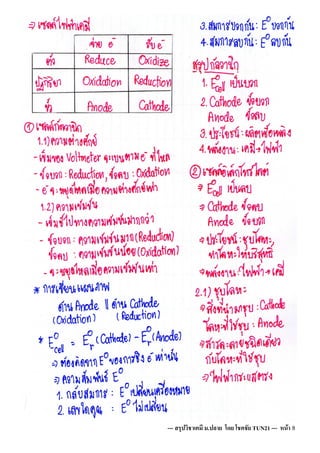 ⇒ เซลล์ไฟฟ้าเคมี
จ่าย e⁻ รับ e⁻
ตัว Reduce Oxidize
ปฏิกิริยา Oxidation Reduction
ขั้ว Anode Cathode
① เซลล์กัลวานิก
1.1) ความต่างศักย์
- เข็มของ Voltmeter จะเบนตาม e⁻ ที่ไหล
- ขั้วบวก : Reduction, ขั้วลบ : Oxidation
- e⁻ จะหยุดไหลเมื่อความต่างศักย์เท่า
1.2) ความเข้มข้น
- เข็มชี้ไปทางความเข้มข้นมากกว่า
- ขั้วบวก : ความเข้มข้นมาก (Reduction)
ขั้วลบ : ความเข้มข้นน้อย (Oxidation)
- จะหยุดไหลเมื่อความเข้มข้นเท่า
* การเขียนแผนภาพ
ด้าน Anode || ด้าน Cathode
(Oxidation) (Reduction)
* E°cell = E°r (Cathode) - E°r (Anode)
⇒ ต้องคิดจาก E° ของการชิง e⁻ เท่านั้น
⇒ ความสัมพันธ์ E°
1. กลับสมการ : E° เปลี่ยนเครื่องหมาย
2. เลขใดคูณ : E° ไม่เปลี่ยน
3. สมการบวกกัน : E° บวกกัน
4. สมการลบกัน : E° ลบกัน
สรุปกัลวานิก
1. E°cell เป็นบวก
2. Cathode ขั้วบวก
Anode ขั้วลบ
3. ประโยชน์ : ผลิตเชื้อเพลิง
4. พลังงาน : เคมี → ไฟฟ้า
② เซลล์อิเล็กโทรไลต์
⇒ E°cell เป็นลบ
⇒ Cathode ขั้วลบ
Anode ขั้วบวก
⇒ ประโยชน์ : ชุบโลหะ,
ทำโลหะให้บริสุทธิ์
⇒ พลังงาน : ไฟฟ้า → เคมี
2.1) ชุบโลหะ
⇒ สิ่งที่นำมาชุบ : Cathode
โลหะที่ใช้ชุบ : Anode
⇒ สารละลายชนิดเดียว
กับโลหะที่ใช้ชุบ
⇒ ไฟฟ้ากระแสตรง
--- สรุปวิชาเคมี ม.ปลาย โดย โชคชัย TUN21 --- หน้า 8